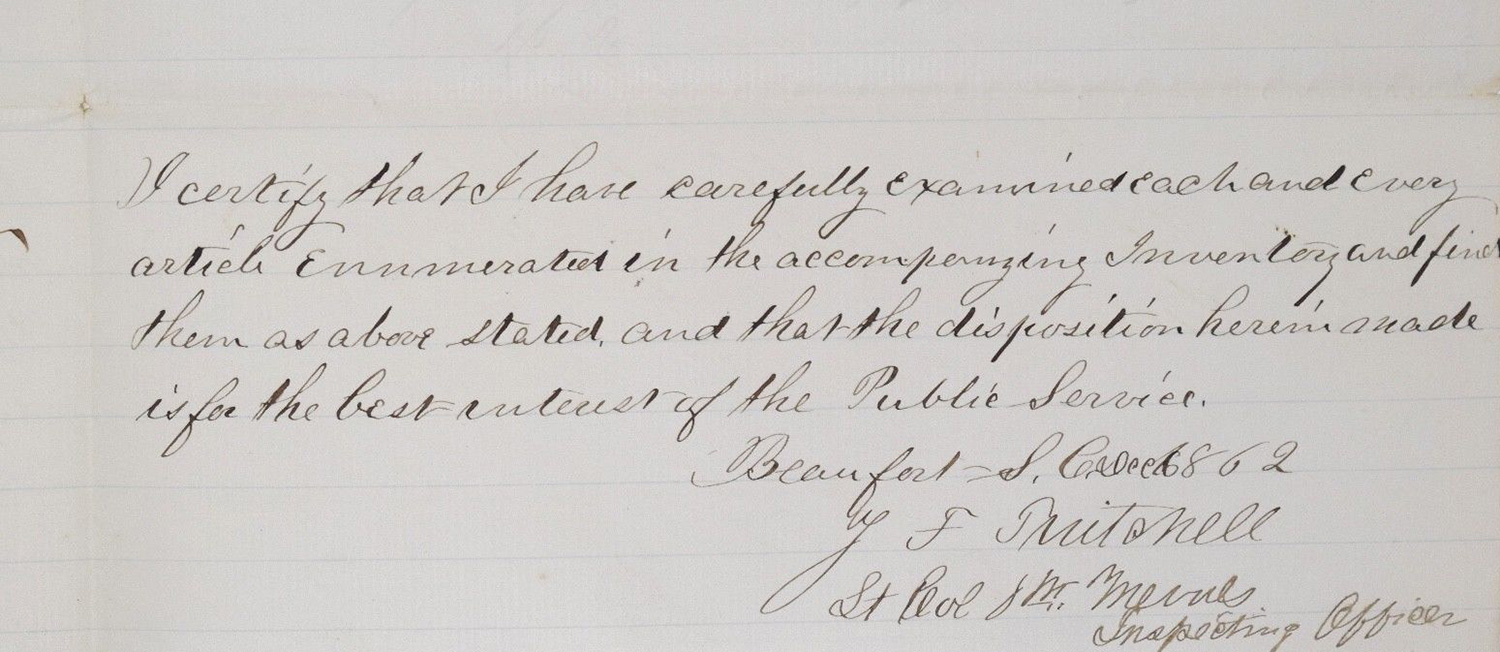 I certify that I have carefully examined each and every
article Enumerated in the accompanying Inventory and find
them as above stated, and that the disposition herein made
is for the best interest of the Public Service.
Beaufort S. C. Dec 1862
J F Twitchell
Lt Col 8th Me vols
Inspecting Officer